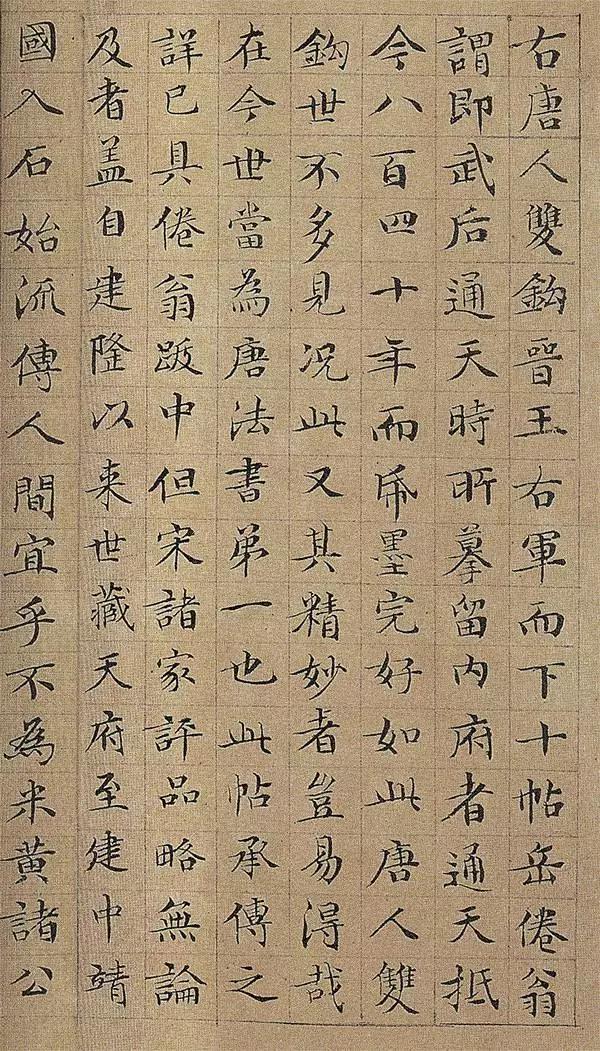 右唐人雙鈎晉王右軍而下十帖岳倦翁
謂即武后通天時所摹留内府者通天抵
今八百四十年而帋墨完好如此唐人雙
鈎世不多見况此又其精妙者豈易得哉
在今世當為唐法書第一也此帖承傳之
詳已具倦翁跋中但宋諸家評品略無論
及者盖自建隆以来世藏天府至建中靖
國入石始流傳人間宜乎不為米黄諸公